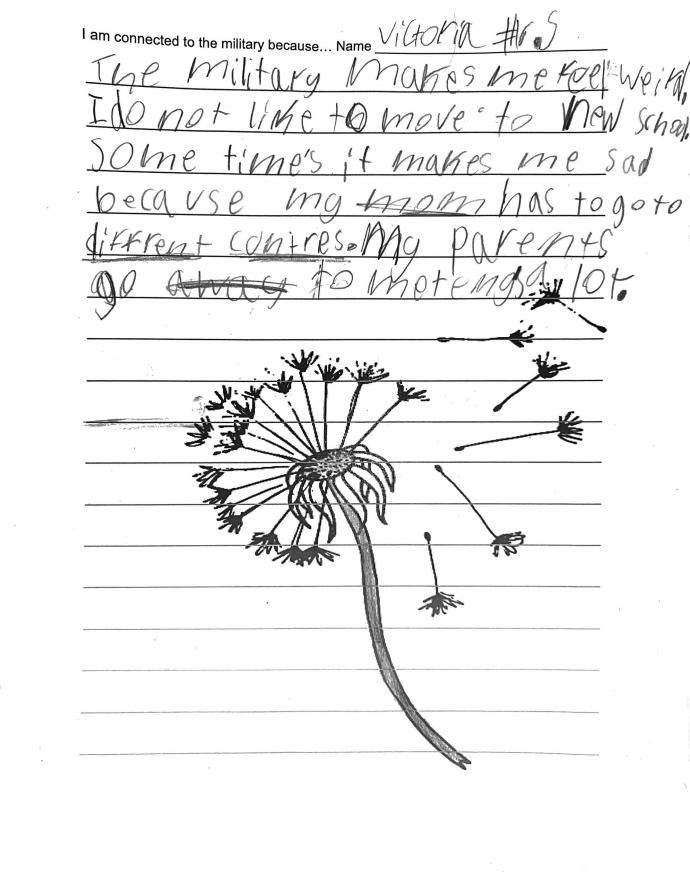 I am connected to the military because... Name Victoria #r.S
The military makes me feel weird,
I do not like to move to new school.
Some time's it makes me sad
because my mom has to go to
diffrent contres. My parents
go away to metengs a lot.